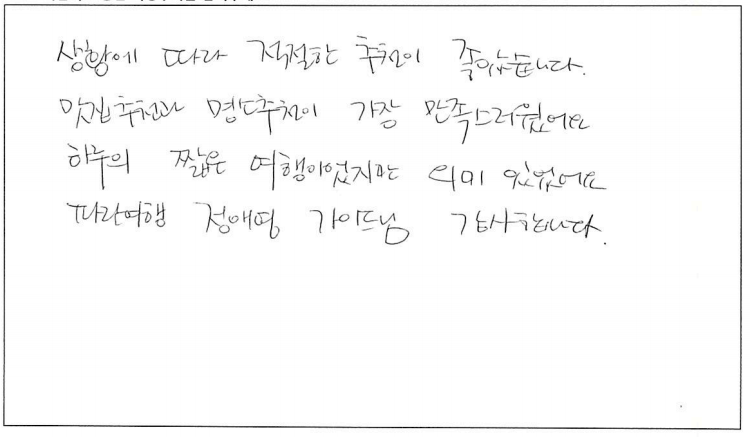 상황에 따라 적절한 추천이 좋았습니다.
맛집추천과 명소추천이 가장 만족스러웠어요
하루의 짧은 여행이었지만 의미 있었어요
따라여행 정애영 가이드님 감사합니다.